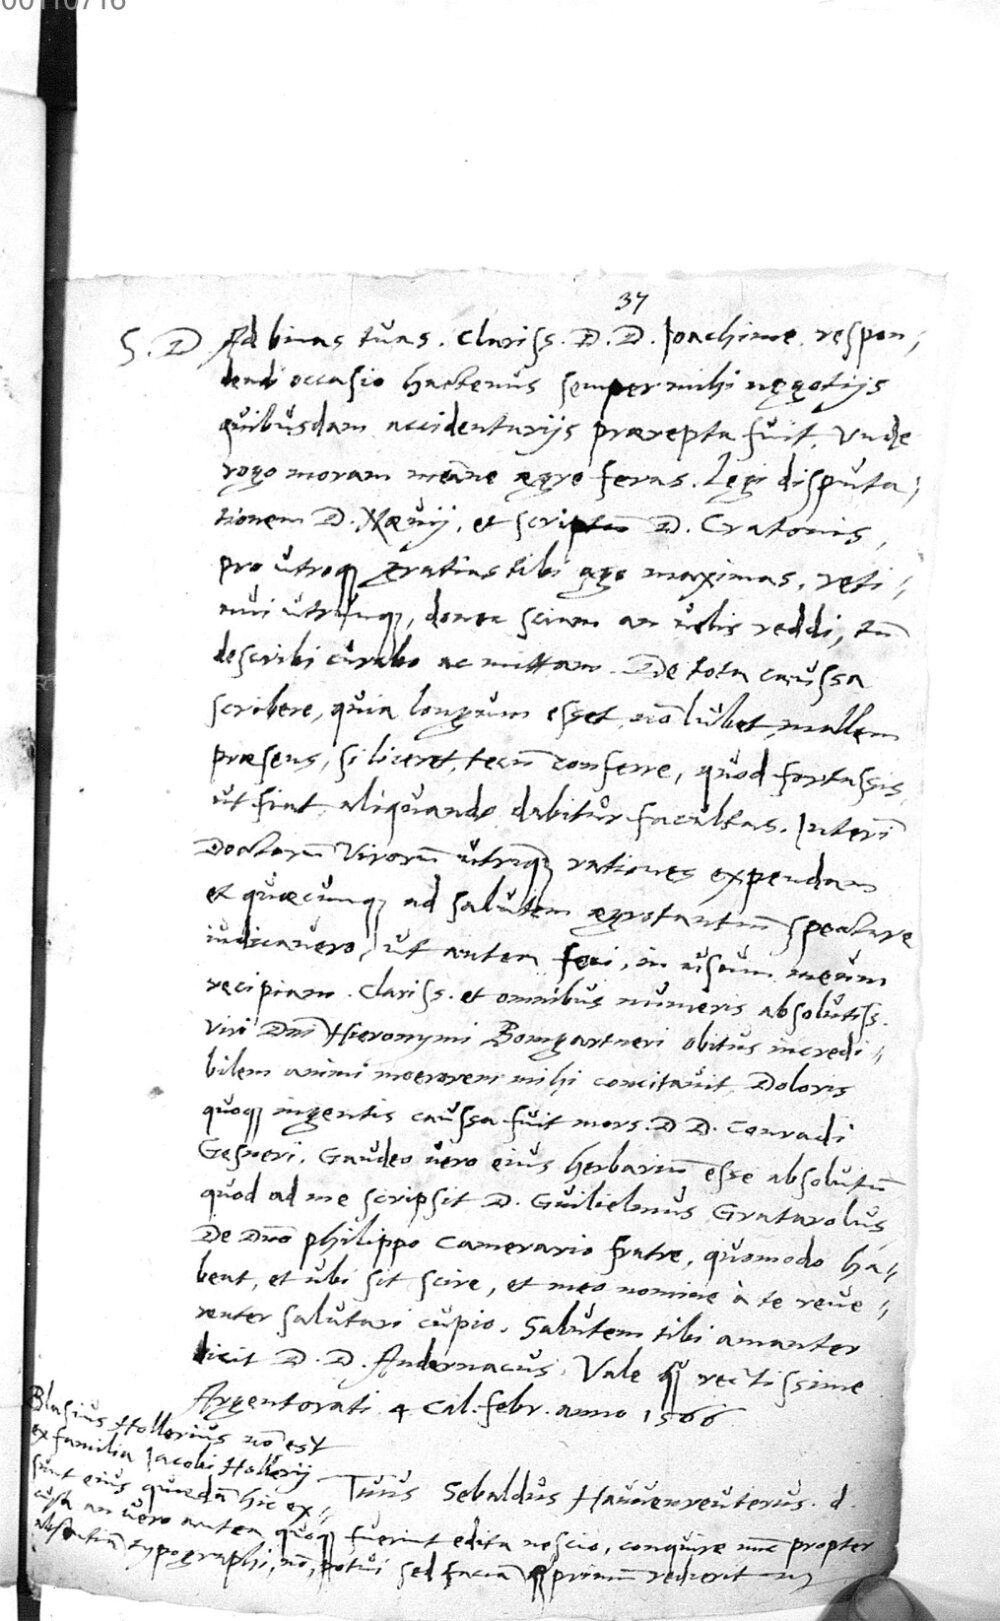 00110716
37
S. D Ad binas tuas. Clariss. D. D. Joachime. respon,,
dendi occasio hactenus semper mihi negotijs
quibusdam accidentarijs praerepta fuit. Unde
rogo moram meam ne aegre feras. Legi disputa,,
tionem D. Naevij, et scriptum D. Cratonis,
pro utroqꝫ gratias tibi ago maximas, reti,,
nui utrunqꝫ, donec sciam an velis reddi, tū
describi curabo ac mittam. De tota caussa
scribere, quia longum esset, nō lubet, mallem
praesens, si liceret, tecū conferre, quod fortassis
ut fiat aliquando dabitur facultas. Interī
Doctorū Virorū utriusqꝫ rationes expendam
et quaecunqꝫ ad salutem aegrotantiū spectare
iudicavero, ut autem feci, in usum meum
recipiam. Clariss. et omnibus numeris absolutiss.
viri Dni Hieronymi Bomgartneri obitus incredi,,
bilem animi moerorem mihi concitavit. Doloris
quoqꝫ ingentis caussa fuit mors. D D. Conradi
Gesneri. Gaudeo vero eius herbariū esse absolutū
quod ad me scripsit D. Guilielmus Gratarolus,
De Dno philippo Camerario fratre, quomodo ha,,
beat, et ubi sit scire, et meo nomine à te reve,,
renter salutari cupio. Salutem tibi amanter
dicit D. D. Andernacus. Vale qꝫ rectissime
Argentorati 4 Cal. febr. anno 1566
Tuus Sebaldus Hauuenreuterus. d.
Blasius Hollerius nō est
ex familia Jacobi Hollerij
sunt eius quaedā hic ex,,
cusa an vero autea quoqꝫ fuerint edita nescio, conquire nūc propter
absentiā typographi, nō potui sed faciā qꝫ primū redierit